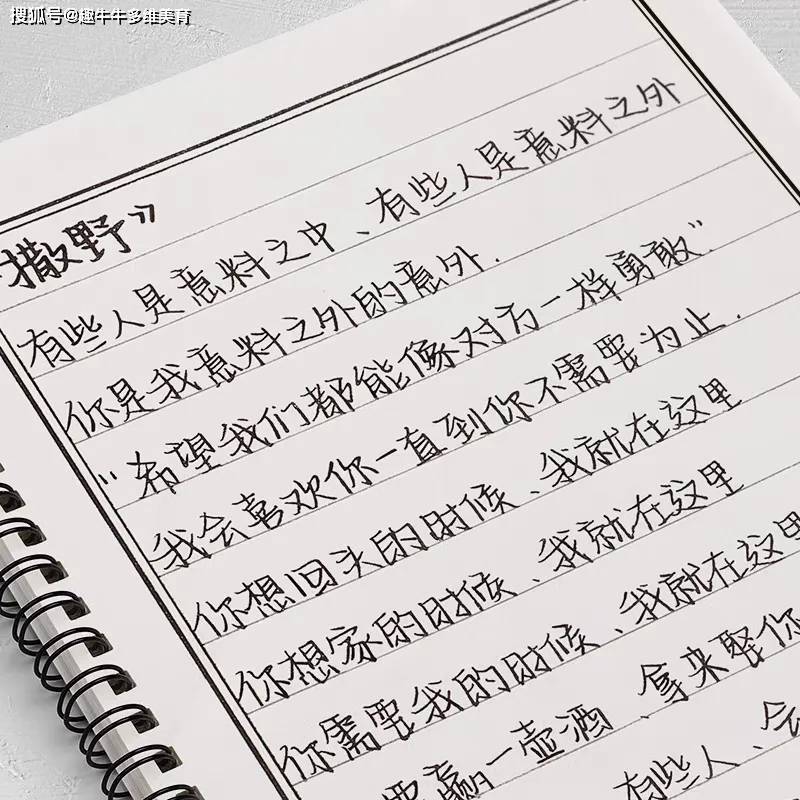 搜狐号@趣牛牛多维美育
撒野》
有些人是意料之中、有些人是意料之外
你是我意料之外的意外.
"希望我们都能像对方一样勇敢".
我会喜欢你一直到你不需要为止.
你想回头的时候、我就在这里
你想家的时候、我就在这里
你需要我的时候、我就在这里
要赢一壶酒、拿来娶你
有些人、会